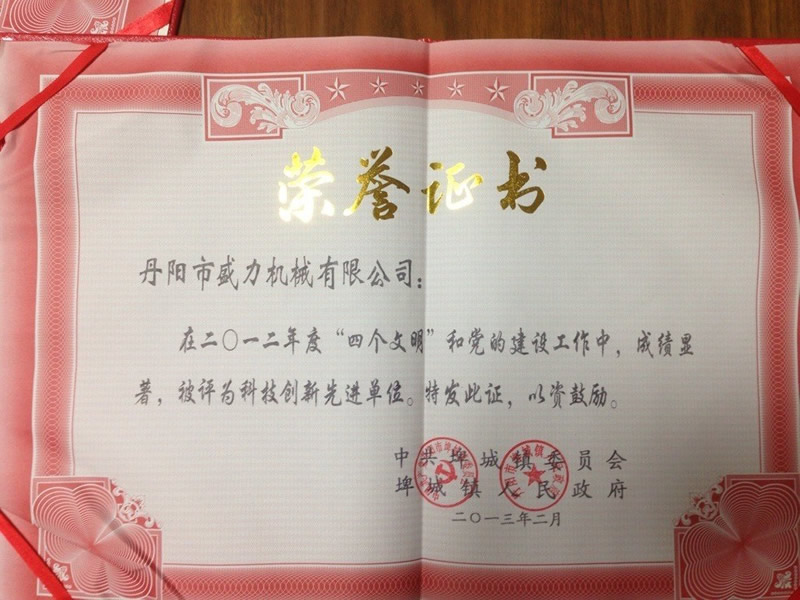 荣誉证书
丹阳市盛力机械有限公司：
在二〇一二年度“四个文明”和党的建设工作中，成绩显
著，被评为科技创新先进单位。特发此证，以资鼓励。
中共埤城镇委员会
埤城镇人民政府
二〇一三年二月